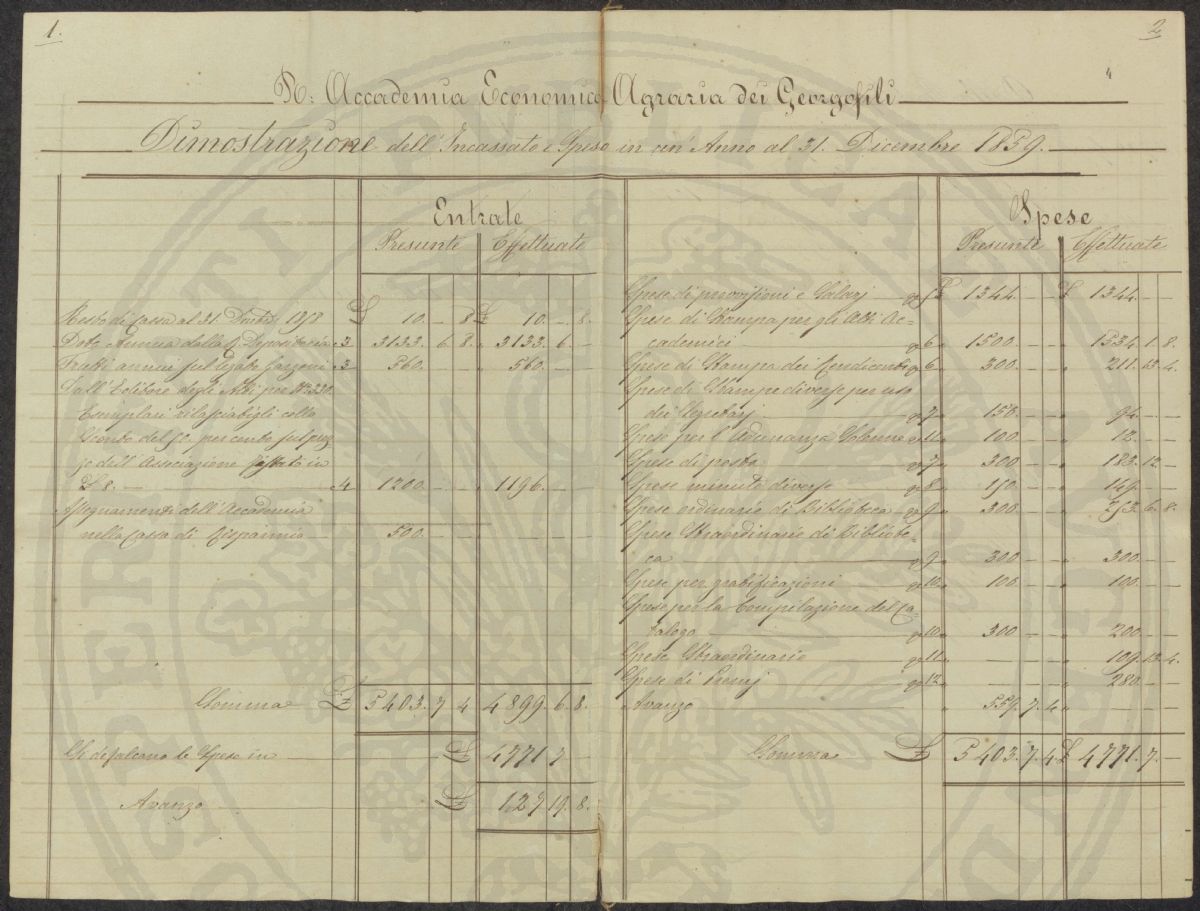 1.
2
R: Accademia Economico Agraria dei Georgofili
Dimostrazione dell'Incassato e Speso in un'Anno al 31. Dicembre 1859.
Entrate
Presunte Effettuate
Resto di Cassa al 31. Dicbre 1858 £ 10. – 8 £ 10. – 8.
Dote Annua dalla R. Depositeria 2 3133. 6 8. 3133. 6 –
Frutti annui sul Legato 3 560. – – 560. – –
Dall'Editore degli Atti per N.° 330.
Esemplari rilasciatigli collo
Sconto del 50. per cento sul prez
zo dell'Associazione fissato in
£ 8. – 4 1200. – – 1196. – –
Assegnamenti dell'Accademia
nella Cassa di Risparmio 500. – –
Somma £ 5403. 7 4 4899. 6. 8.
Si defalcano le Spese in £ 4771 7 –
Avanzo £ 127 19. 8.
Spese
Presunte Effettuate
Spese di provvisioni e Salarj 5 £ 1344. – – £ 1344. – –
Spese di Stampa per gli Atti Ac-
cademici 6 1500. – – 1534. 1. 8.
Spese di Stampa dei Rendiconti 6 300. – – 211. 13. 4.
Spese di Stampe diverse per uso
dei Segretarj 7 150. – – 94. – –
Spese per l'Adunanza Solenne 11 100. – – 12. – –
Spese di posta 7 300 – – 183. 12. –
Spese minute diverse 8 150. – – 149. – –
Spese ordinarie di Biblioteca 9 300. – – 253. 6. 8.
Spese Straordinarie di Bibliote-
ca 9 300 – – 300. – –
Spese per gratificazioni 10 100. – – 100. – –
Spese per la Compilazione del Ca
talogo 10 300 – – 200. – –
Spese Straordinarie 11 – – – 109. 13. 4.
Spese di Premj 12 – – – 280. – –
Avanzo 559. 7. 4.
Somma £ 5403. 7. 4 £ 4771. 7. –